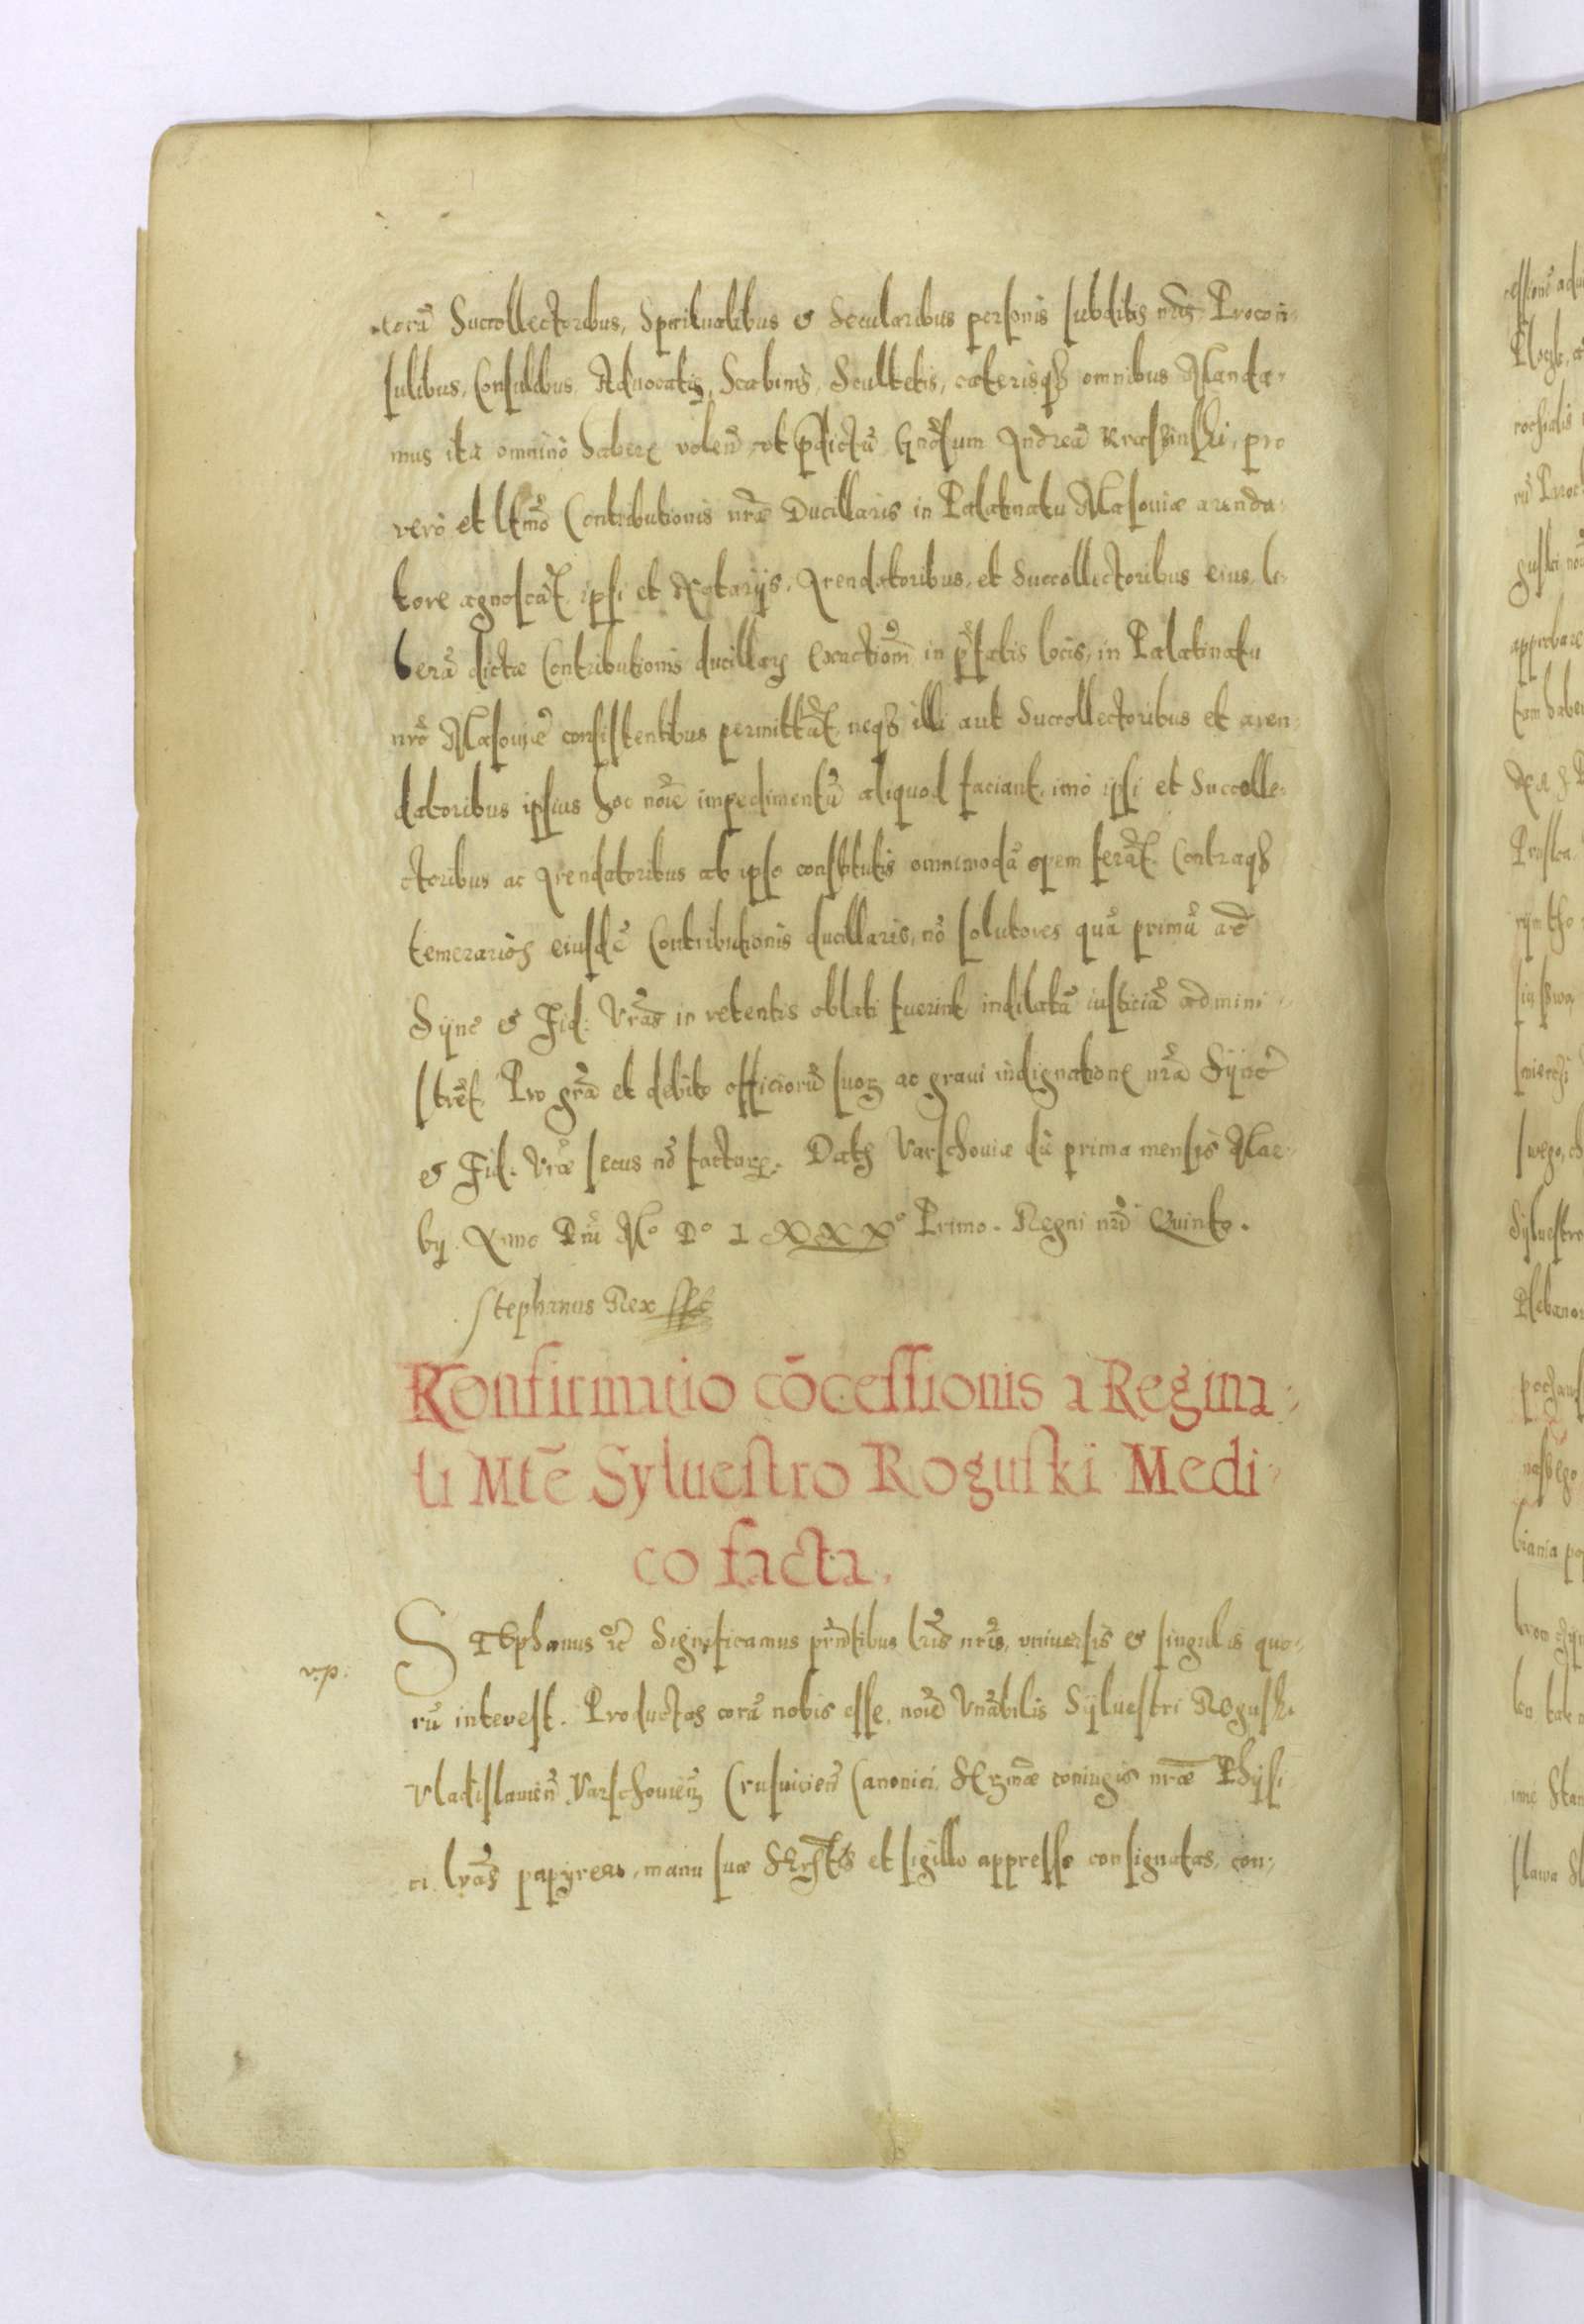 eorū Succollectoribus, Spiritualibus et Secularibus personis subditis nr̃is Procon
sulibus, Consulibus, Advocatis, Scabinis, Scultetis, cæterisqꝫ omnibus Manda
mus ita omninò habere volen̄ ut p̱dictū Gn̄osum Andreā Krassinski, pro
verò et ltm̄o Contributionis nr̄æ Ducillaris in Palatinatu Masoviæ arenda
tore agnoscāt ipsi et Notarijs, Arendatoribus, et Succollectoribus eius, li
berā dictæ Contributionis ducillaris exactiom̄ in p̄fatis locis, in Palatinatu
nr̄o Masoviæ consistentibus permittāt, neqꝫ illi aut Succollectoribus et aren
datoribus ipsius hoc noīe impedimentū aliquod faciant, imò ipsi et Succolle
ctoribus ac Arendatoribus ab ipso constitutis omnimodā opem ferāt. Contraqꝫ
temerarios eiusdē Contributionis ducillaris, nō solutores quā primū ad
Sync̄ et Fid: Vrās in retentis oblati fuerint indilatā iusticiā admini
strēt, Pro gr̄a et debito officiorū suoꝝ ac gravi indignatione nr̄a Sync̄
et Fid: Vræ secus nō facturæ. Datꝫ Varschoviæ die prima mensis Mar
by Anno Dn̄i Mº Dº LXXXº Primo. Regni nr̄i Quinto.
Stephanus Rex sst
Konfirmatio cōcessionis a Regina
li Mtē Syluestro Roguski Medi
co facta.
v.p.
STEphanus etc̄ Significamus pn̄tibus lr̄is nr̄is, vniuersis et singulis quo
rū interest. Productas corā nobis esse, noīe Vn̄abilis Syluestri Roguski
Vladislavien̄ Varschovien̄ Crusvicien̄ Canonici, Srmæ coniugis nr̄æ Physi
ci lr̄as papyreas, manu suæ Srtis et sigillo appresso consignatas, con